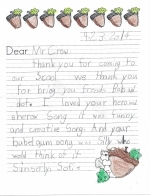 7.2.3.2014
Dear Mr Crow
thank you for coming to
our School we thank you
for bring you friends Robin
dot. I loved your
song it was funny
and creative Song. And your
bubel gum song was Silly who
wold think of it
Sinserly: Sofi